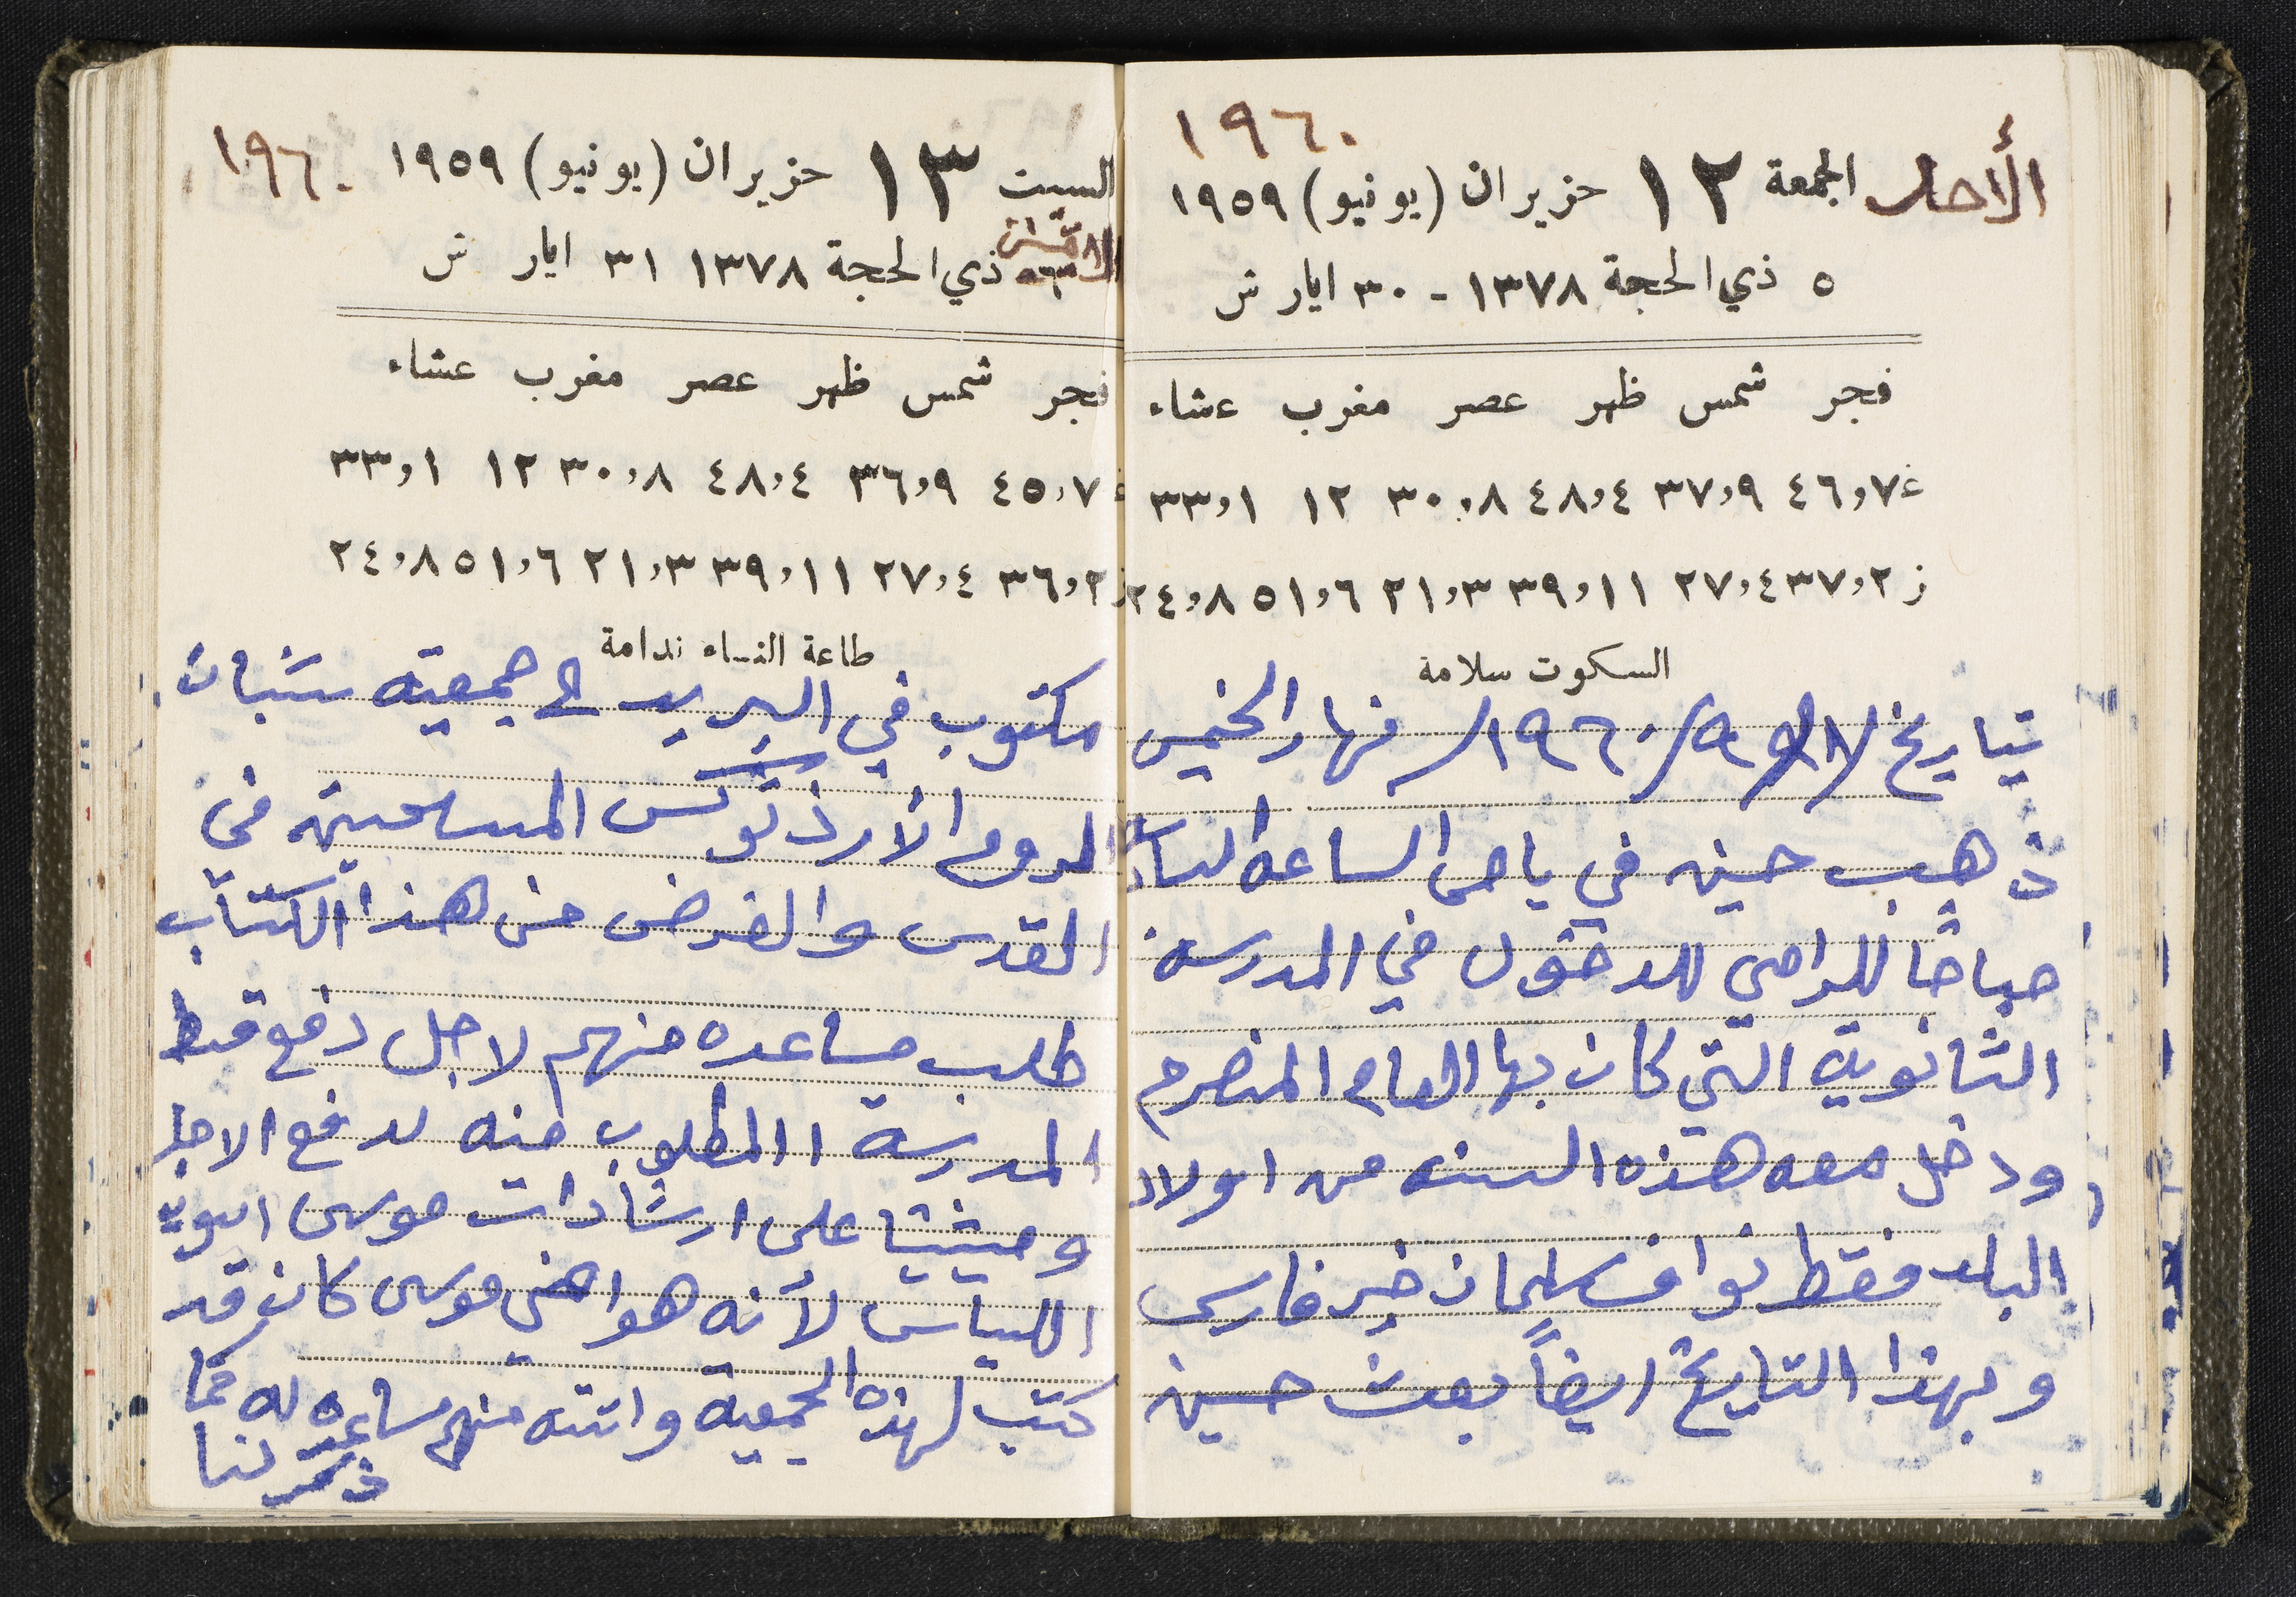 ١٩٦٠
الأحد الجمعة ١٢ حزيران (يونيو) ١٩٥٩
٥ ذي الحجة ١٣٧٨ - ٣٠ ايار ش
فجر شمس ظهر عصر مغرب عشاء
غ ٤٦,٧ ٣٧,٩ ٤٨,٤ ٣٠,٨ ١٢ ٣٣,١
ز ٣٧,٢ ٢٧,٤ ٣٩,١١ ٢١,٣ ٥١,٦ ٢٤,٨
السكوت سلامة
بتاريخ ١٩٦٠ نهار الخميس
ذهب حسين في باص الساعه
صباحاً للرامي للدخول في المدرسة
الثانوية التي كان بها العام المنصرم
ودخل معه هذه السنه من اولاد
البلد فقط نواف سليمان خير فارس
وبهذا التاريخ ايضاً بعث حسين
السبت ١٣ حزيران (يونيو) ١٩٥٩ ١٩٦٠
الاثنين ٦ ذي الحجة ١٣٧٨ ٣١ ايار ش
فجر شمس ظهر عصر مغرب عشاء
غ ٤٥,٧ ٣٦,٩ ٤٨,٤ ٣٠,٨ ١٢ ٣٣,١
ز ٣٦,٢ ٢٧,٤ ٣٩,١١ ٢١,٣ ٥١,٦ ٢٤,٨
طاعة النساء ندامة
مكتوب في البريد الى جمعية شبان
الروم الأرذثوكس المسيحية في
القدس والغرض من هذا الكتاب
طلب مساعده منهم لاجل دفع قسط
المدرسة المطلوب منه لدفع الاجار
على ارشادات موسى
اللياس لأنه هو اعني موسى كان قد
كتب لهذه الجمعية واتته منهم مساعده له كما
ذكر لنا